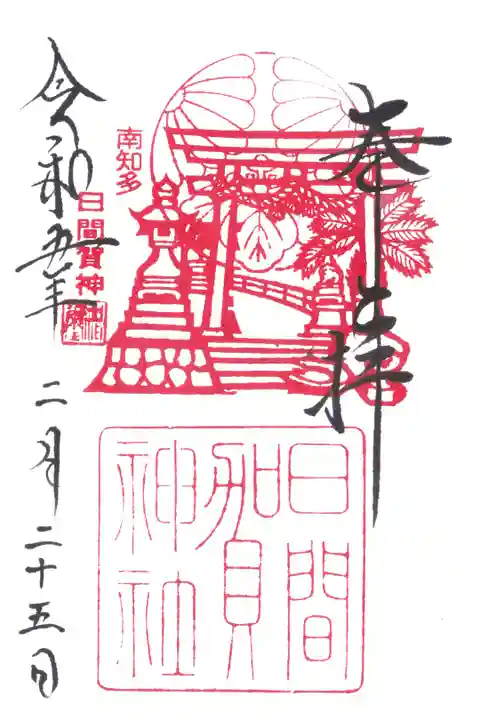 奉拝
南知多
日間賀神社
日間
賀
神社
令和五年
二月二十五日